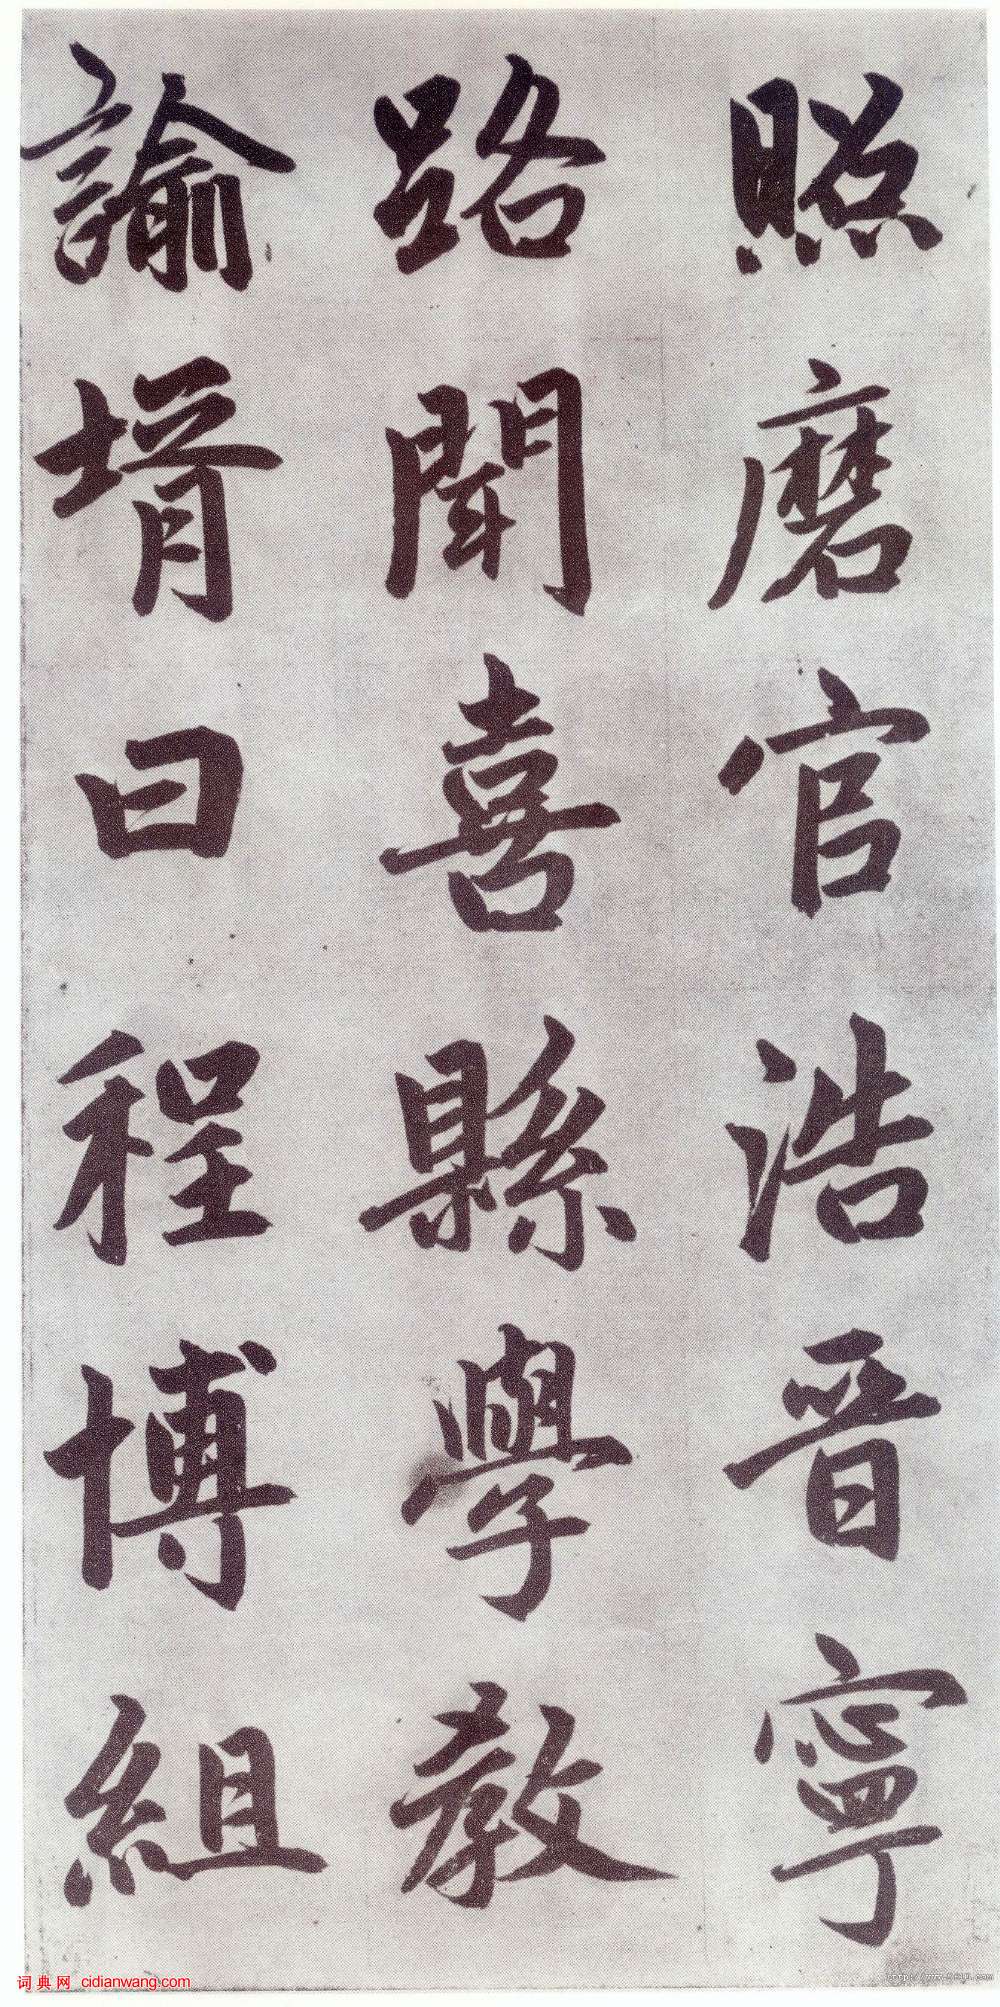 照磨官浩晉寧
路聞喜縣學教
諭壻曰程博組
词典网 cidianwang.com